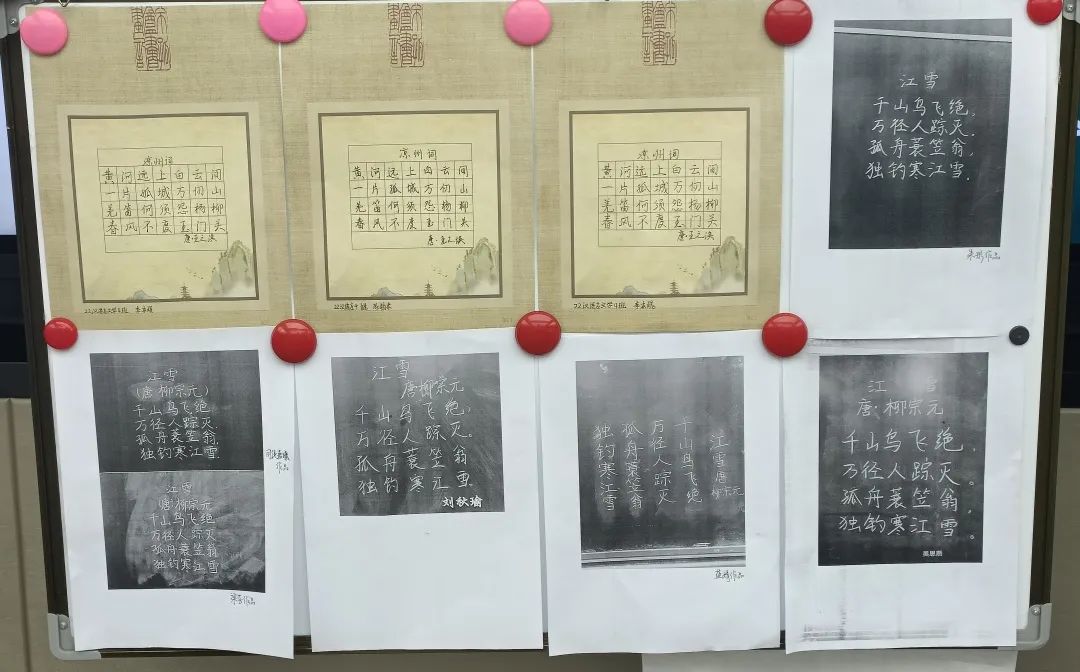 凉州词
黄河远上白云间
一片孤城万仞山
羌笛何须怨杨柳
春风不度玉门关
唐·王之涣
22汉语言文学4班
凉州词
黄河远上白云间
一片孤城万仞山
羌笛何须怨杨柳
春风不度玉门关
唐·王之涣
凉州词
黄河远上白云间
一片孤城万仞山
羌笛何须怨杨柳
春风不度玉门关
唐·王之涣
22汉语言文学4班
江雪
千山鸟飞绝,
万径人踪灭.
孤舟蓑笠翁,
独钓寒江雪.
作品
江雪
(唐·柳宗元)
千山鸟飞绝,
万径人踪灭.
孤舟蓑笠翁,
独钓寒江雪.
作品
江雪
唐·柳宗元
千山鸟飞绝
万径人踪灭
孤舟蓑笠翁
独钓寒江雪
作品
江雪
唐柳宗元
千山鸟飞绝,
万径人踪灭。
孤舟蓑笠翁
独钓寒江雪.
刘秋瑜
江雪唐柳宗元
千山鸟飞绝
万径人踪灭
孤舟蓑笠翁
独钓寒江雪
作品
江雪
唐·柳宗元
千山鸟飞绝,
万径人踪灭。
孤舟蓑笠翁,
独钓寒江雪。